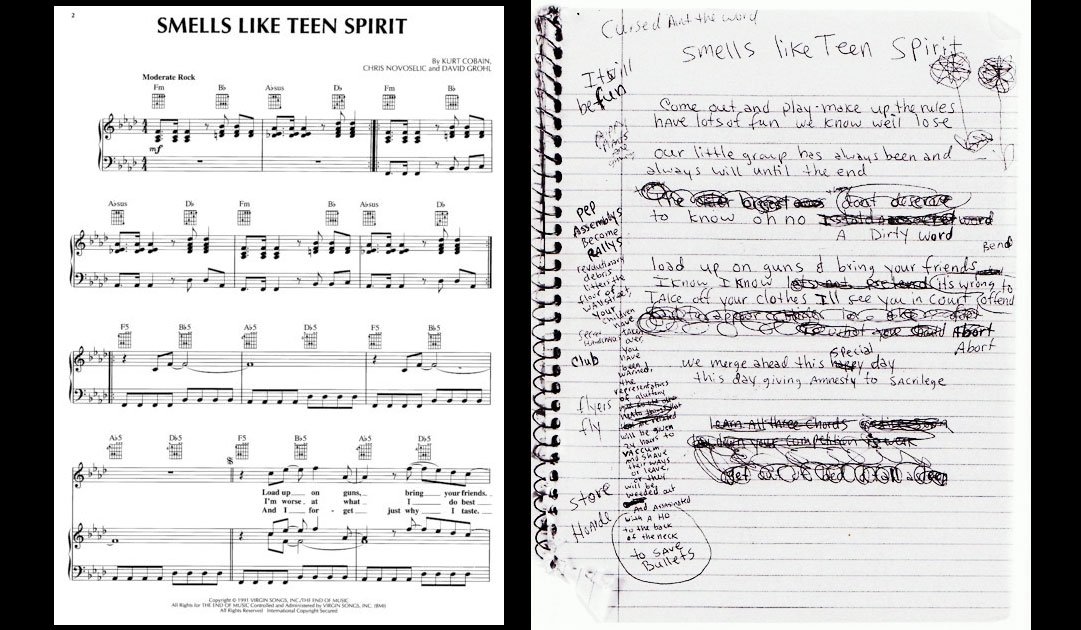 2
SMELLS LIKE TEEN SPIRIT
By KURT COBAIN,
CHRIS NOVOSELIC and DAVID GROHL
Moderate Rock
Fm B♭ A♭sus D♭ Fm B♭
mf
A♭sus D♭ Fm B♭ A♭sus D♭
F5 B♭5 A♭5 D♭5 F5 B♭5
A♭5 D♭5 F5 B♭5 A♭5 D♭5
Load up on guns, bring your friends.
I'm worse at what I do best
And I for - get just why I taste.
Copyright © 1991 VIRGIN SONGS, INC./THE END OF MUSIC
All Rights for THE END OF MUSIC Controlled and Administered by VIRGIN SONGS, INC. (BMI)
All Rights Reserved International Copyright Secured
Cursed the word
Smells like Teen Spirit
Its will
be fun
Come out and play - make up the rules
have lots of fun we know we'll lose
our little group has always been and
always will until the end
The dont deserve
to know oh no word
A Dirty word
Bend
load up on guns & bring your friends
I know I know lets not Pretend (its wrong to
TAKE off your clothes I'll see you in court (offend
what you should Abort
Abort
special
we merge ahead this happy day
this day giving Amnesty to SAcrilege
LeArn All three Chords
your competition
pep
Assemblys
become
RALLYs
revolutionary
debris
litters the
floor of
WAllstreet
your
children
have
taken
over
you
have
been
warned.
the
representatives
of gluttony
will be given
24 hours to
VACCUM
And SHAVE
their ways
or leave.
or they
will be
weeded out
And Assasinated
with A Ho
to the back
of the neck
to SAVE
Bullets
Club
flyers
fly
store